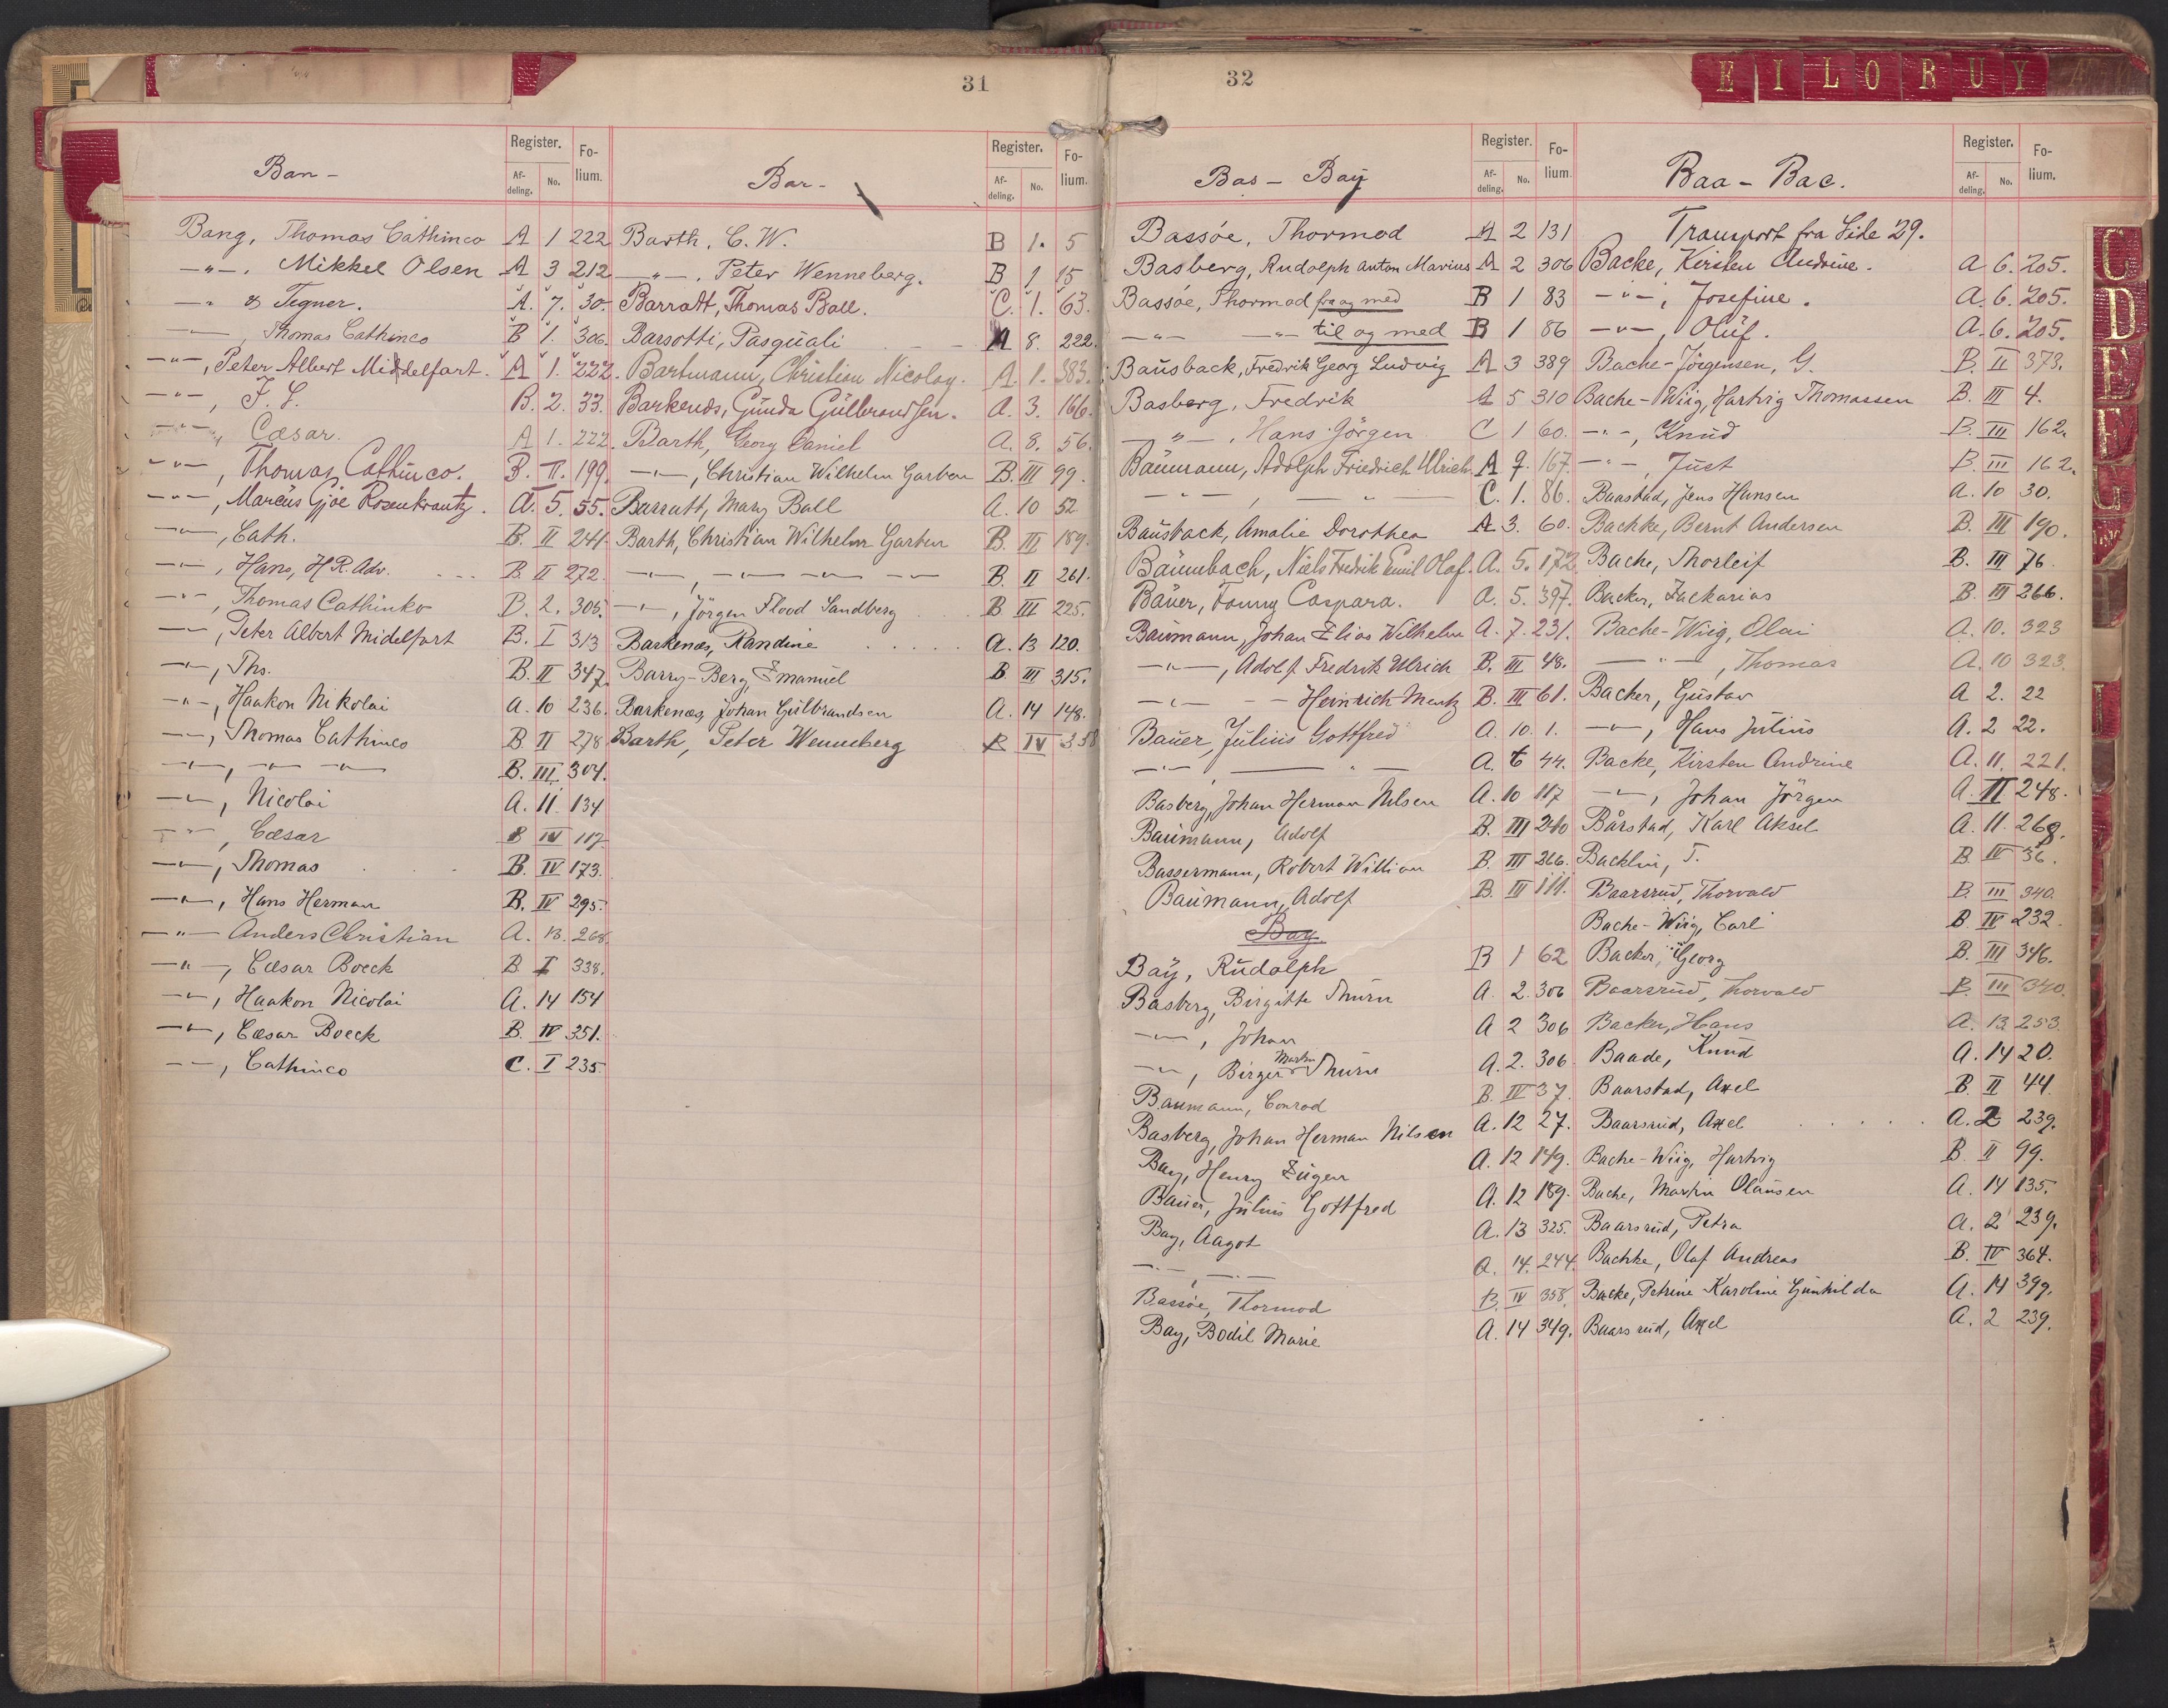 31
Ban -
Register.
Fo-
lium.
Af-
deling.
No.
Bang, Thomas Cathinco A 1 222
-"-, Mikkel Olsen A 3 212
-" & Tegner. A. 7. 30.
-"-, Thomas Cathinco B 1. 306.
-"-, Peter Albert Middelfart. A 1. 222.
-"-, F. L. B. 2. 33.
-"-, Cæsar. A 1. 222.
-"-, Thomas Cathinco. B. II. 199.
-"-, Marcus Gjøe Rosenkrantz. A. 5. 55.
-"-, Cath. B. II 241.
-"-, Hans, H.R.Adv. B. II 272.
-"-, Thomas Cathinko B. 2. 305.
-"-, Peter Albert Midelfart B. I 313
-"-, Ths. B. II 347.
-"-, Haakon Nikolai A. 10 236.
-"-, Thomas Cathinco B. II 278
-"-, -"- -"- B. III 304.
-"-, Nicolai A. 11. 134
-"-, Cæsar B IV 117
-"-, Thomas B. IV 173.
-"-, Hans Herman B. IV 295.
-"- Anders Christian A. 13. 268.
-"-, Cæsar Boeck B. I 338.
-"-, Haakon Nicolai A. 14 154
-"-, Cæsar Boeck B. IV 351.
-"-, Cathinco C. I 235
Bar -
Register.
Fo-
lium.
Af-
deling.
No.
Barth, C. W. B 1. 5
-"-, Peter Wenneberg. B 1 15
Barratt, Thomas Ball. C. 1. 63.
Barsotti, Pasquali A 8. 222.
Bartmann, Christian Nicolay. A. 1. 383.
Barkends, Gunda Gulbrandsen. A. 3. 166.
Barth, Georg Daniel A. 8. 56.
-"-, Christian Wilhelm Garben B. III 99.
Barratt, Mary Ball A. 10 52
Barth, Christian Wilhelm Garben B. III 189.
-"-, -"- -"- -"- B. II 261.
-"-, Jörgen Flood Sandberg B III 225.
Barkenæs, Randine A. 13 120.
Barry-Berg, Emanuel B III 315.
Barkenæs, Johan Gulbrandsen A. 14 148.
Barth, Peter Wenneberg B IV 358
32
E I L O R U Y
Bas - Bay
Register.
Fo-
lium.
Af-
deling.
No.
Bassöe, Thormod A 2 131
Basberg, Rudolph Anton Marius A 2 306
Bassöe, Thormod fra og med B 1 83
-"- -"- til og med B 1 86
Bausback, Fredrik Georg Ludvig A 3 389
Basberg, Fredrik A 5 310
-"-, Hans Jörgen C 1 60.
Baumann, Adolph Friedrich Ulrich A 9. 167.
-"-, -"- C. 1. 86.
Bausback, Amalie Dorothea A 3. 60.
Baumbach, Niels Fredrik Emil Olaf. A. 5. 172
Bauer, Fanny Caspara. A. 5. 397.
Baumann, Johan Elias Wilhelm A. 7. 231.
-"-, Adolf Fredrik Ulrich B. III 48.
-"- - Heinrich Mentz B. III 61.
Bauer, Julius Gottfred A. 10. 1.
-"- -"- A. 6 44.
Basberg, Johan Herman Nilsen A. 10 117
Baumann, Adolf B. III 240
Bassermann, Robert William B. III 266.
Baumann, Adolf B. III 111.
Bay
Bay, Rudolph B 1 62
Basberg, Birgitte Thurn A. 2. 306
-"-, Johan A 2 306
-"-, Birger Martin Thurn A. 2. 306.
Baumann, Conrad B. IV 37.
Basberg, Johan Herman Nilsen A. 12 27.
Bay, Henry Eugen A. 12 149.
Bauer, Julius Gottfred A. 12 189.
Bay, Aagot A. 13 325.
-"-, -"- A. 14. 244.
Bassöe, Thormod B. IV 358.
Bay, Bodil Marie A. 14 349.
Baa - Bac.
Register.
Fo-
lium.
Af-
deling.
No.
Transport fra Side 29.
Backe, Kirsten Andrine. A 6. 205.
-"-, Josefine. A. 6. 205.
-"-, Oluf. A. 6. 205.
Bache-Jörgensen, G. B. II 373.
Bache-Wiig, Hartvig Thomassen B. III 4.
-"-, Knud B. III 162.
-"-, Just B. III 162.
Baastad, Jens Hansen A. 10 30.
Bachke, Bernt Andersen B. III 190.
Bache, Thorleif B. III 76.
Backer, Zackarias B. III 266.
Bache-Wiig, Olai A. 10. 323
-"-, Thomas A. 10 323.
Backer, Gustav A 2. 22
-"-, Hans Julius A. 2 22.
Backe, Kirsten Andrine A. 11. 221.
-"-, Johan Jörgen A. II 248.
Bårstad, Karl Aksel A. 11. 268.
Backlin, T. B. IV 36.
Baarsrud, Thorvald B. III 340.
Bache-Wiig, Carl B IV 232.
Backer, Georg B. III 346.
Baarsrud, Thorvald B. III 340.
Backer, Hans A. 13 253.
Baade, Knud A. 14 20.
Baarstad, Axel B. II 44
Baarsrud, Axel A. 2 239.
Bache-Wiig, Hartvig B II 99.
Bache, Martin Olausen A. 14 135.
Baarsrud, Petra A. 2 239.
Bachke, Olaf Andreas B. IV 364.
Backe, Petrine Karoline Gunhilda A. 14 399.
Baarsrud, Axel A. 2 239.
C
D
E
F
G
I